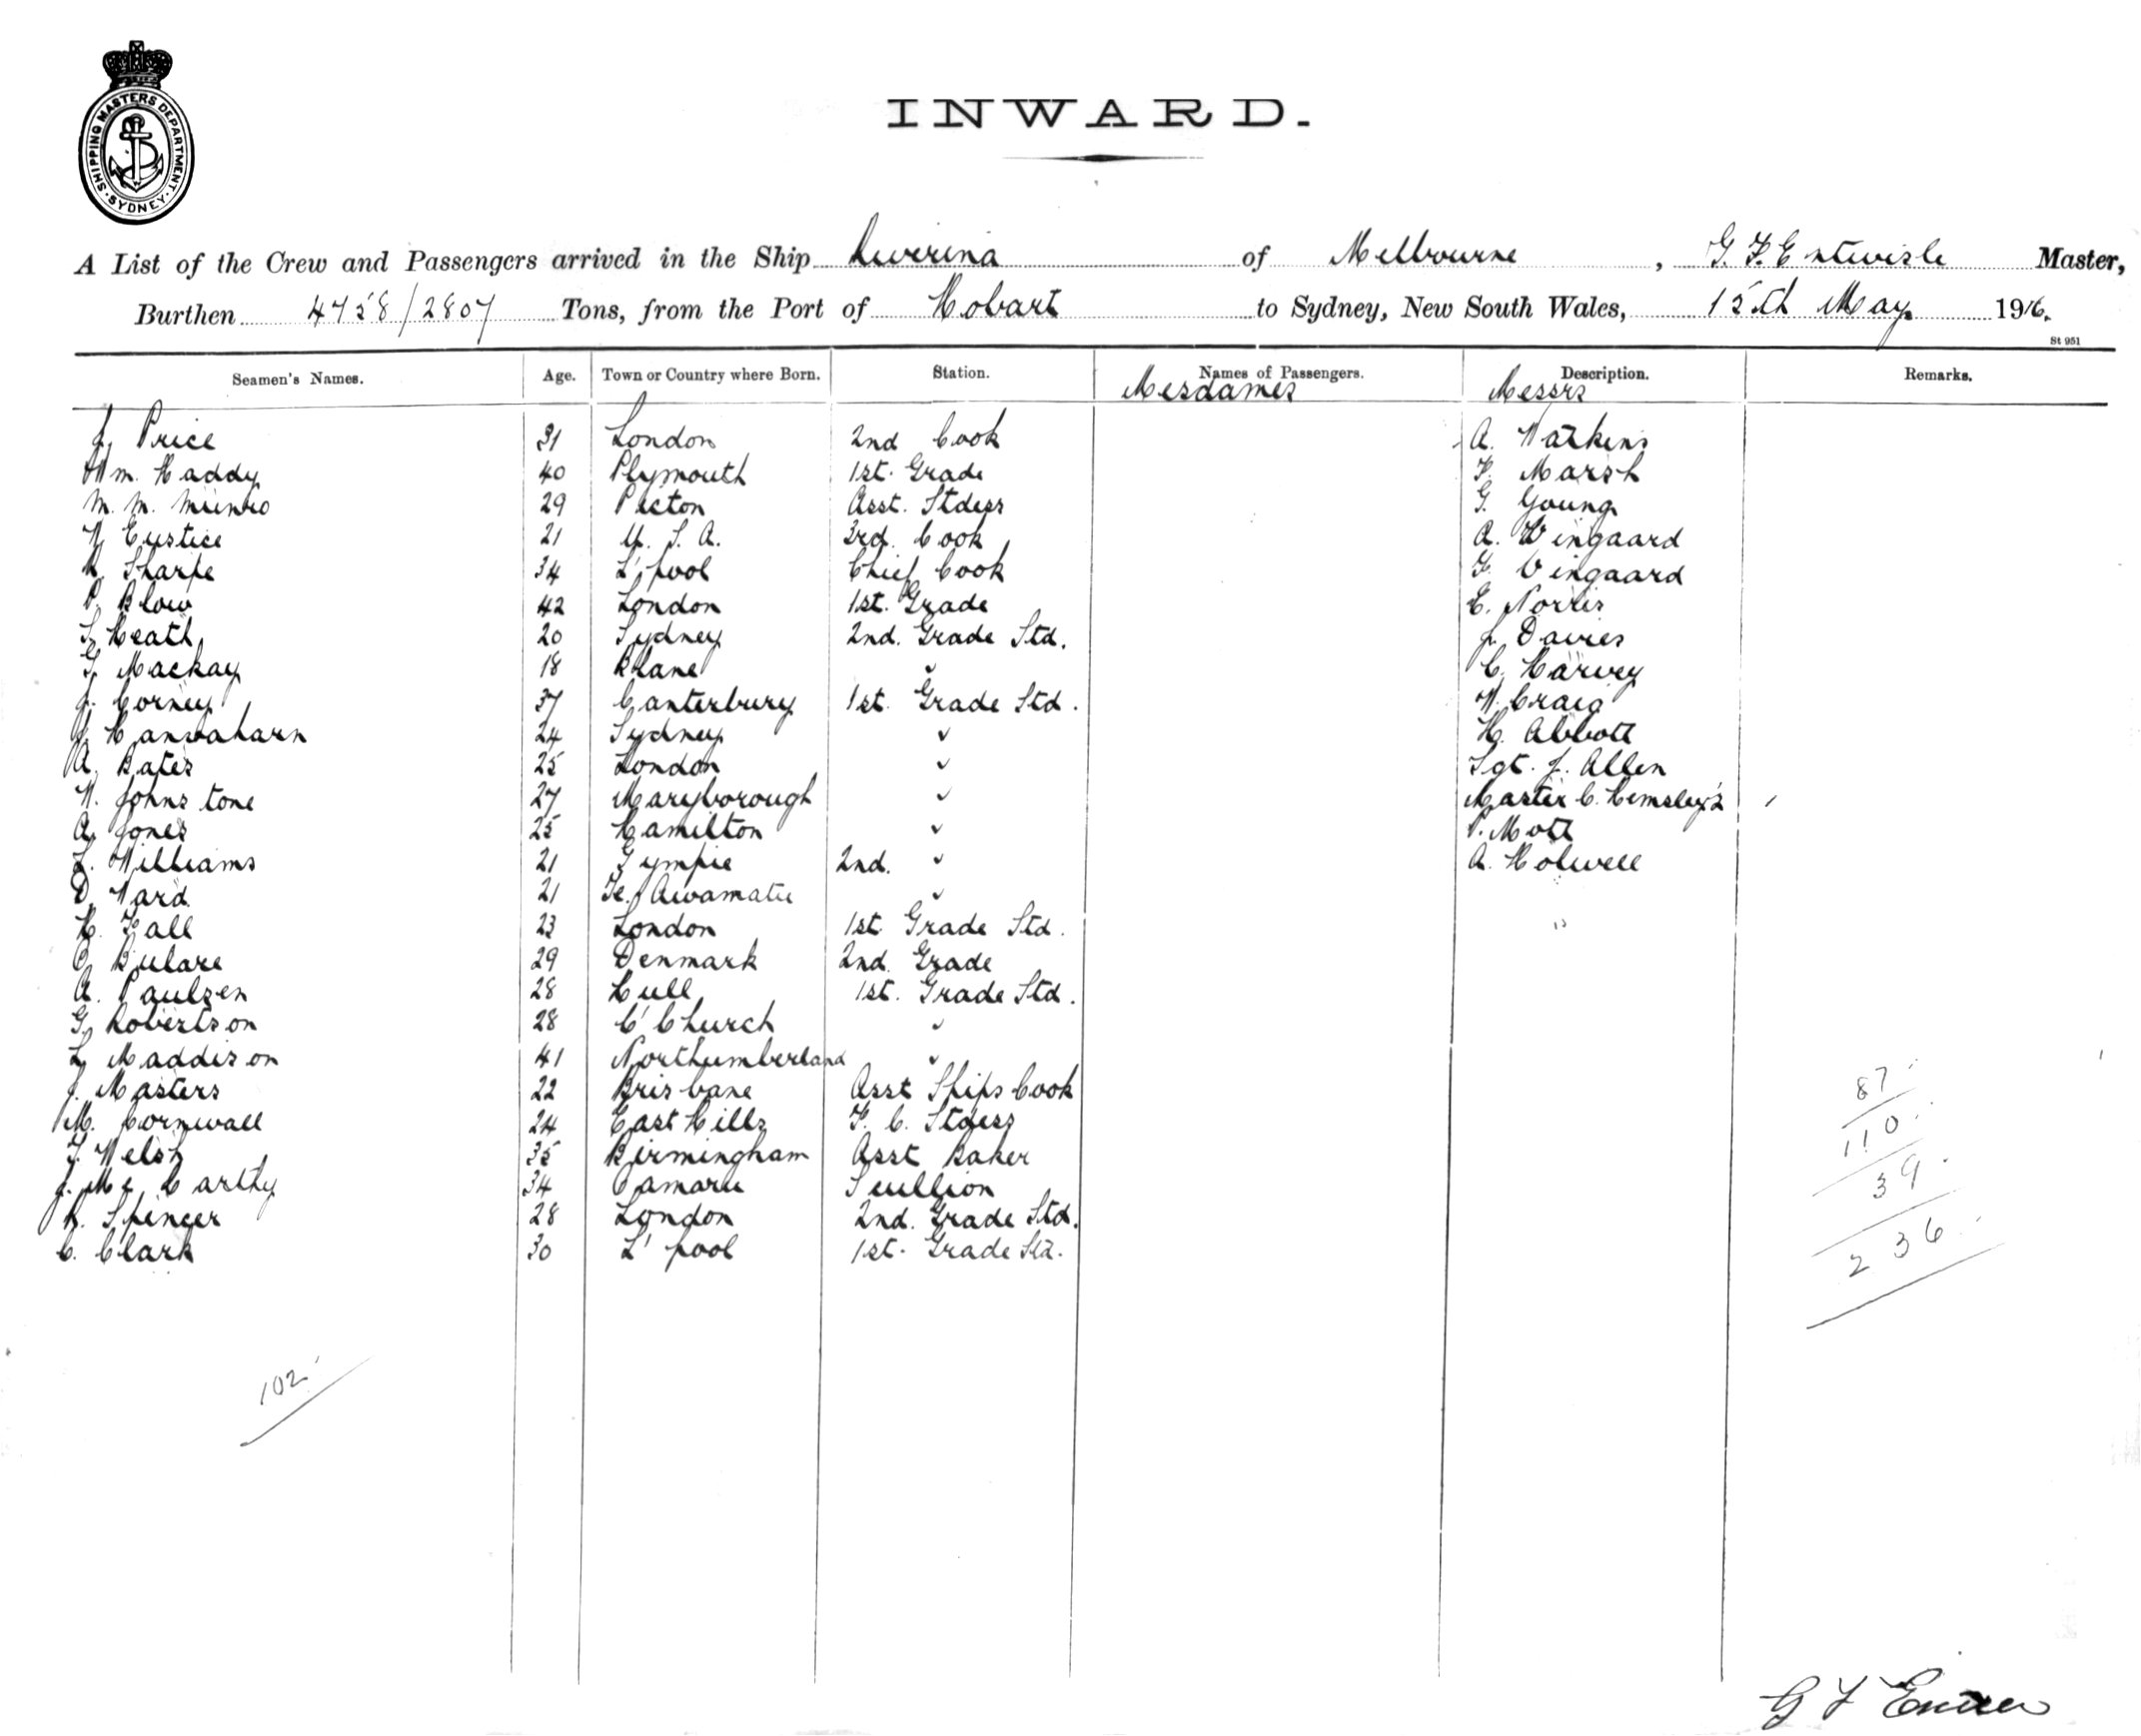 SHIPPING MASTERS DEPARTMENT. SYDNEY.
INWARD.
A List of the Crew and Passengers arrived in the Ship Riverina of Melbourne, G. F. Entwisle Master,
Burthen 4758/2807 Tons, from the Port of Hobart to Sydney, New South Wales, 15th May 1916.
St 951
Seamen's Names. Age. Town or Country where Born. Station. Names of Passengers. Description. Remarks.
Mesdames Messrs
J. Price 31 London 2nd Cook A. Watkins
Wm. Haddy 40 Plymouth 1st. Grade F. Marsh
M. M. Munro 29 Picton Asst. Stdess G. Young
W. Eustice 21 U. S. A. 3rd. Cook A. Wingaard
R. Sharpe 34 L'pool Chief Cook Vingaard
P. Blow 42 London 1st. Grade E. Norris
Heath 20 Sydney 2nd. Grade Std. J. Davies
Mackay 18 Blane " C. Harvey
J. Corney 37 Canterbury 1st. Grade Std. W. Craig
24 Sydney " H. Abbott
A. Bates 25 London " Sgt. J. Allen
W. Johnstone 27 Maryborough " Master C. Hemsley's
A. Jones 25 Hamilton " P. Mott
L. Williams 21 Gympie 2nd. " A. Holwell
D. Ward 21 Te. Awamatu "
H. Fall 23 London 1st Grade Std.
29 Denmark 2nd. Grade
A. Paulsen 28 Hull 1st. Grade Std.
G. Robertson 28 C'Church "
L. Maddison 41 Northumberland "
J. Masters 22 Brisbane Asst Ships Cook
M. Cornwall 24 East Hills F. C. Stdess
F. Welsh 35 Birmingham Asst Baker
J. McCarthy 34 Oamaru Scullion
R. Spencer 28 London 2nd. Grade Std.
C. Clark 30 L'pool 1st. Grade Std.
87
110
39
236
102
G F